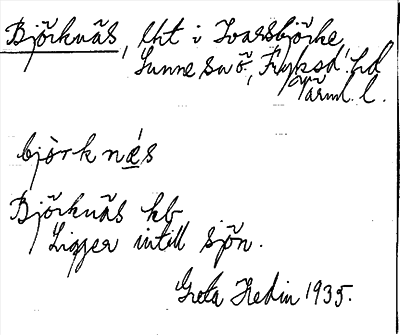 Björknäs, lht i Ivarsbjörke
Sunne sn ö, Fryksd. hd
Värml. l.
bjòrknés
Björknäs kb
Ligger intill sjön.
Greta Hedin 1935.